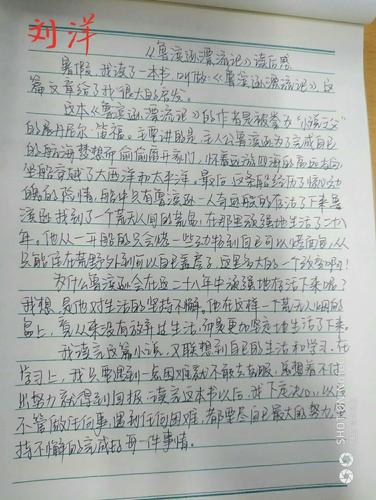 刘洋
《鲁滨逊漂流记》读后感
暑假,我读了一本书,叫做:《鲁滨逊漂流记》,这
篇文章给了我很大的启发。
这本《鲁滨逊漂流记》的作者是被尊为"小说之父"
的展丹尼尔·笛福。主要讲的是:主人公鲁滨逊为了完成自己
的航海梦想而偷偷离开家门,怀着远游四海的高远志向,
坐船穿越了大西洋和太平洋。最后,这条船经历了惊心动
魄的险情,船中只有鲁滨逊一人奇迹般的存活了下来。鲁
滨逊找到了一个荒无人间的荒岛,在那里顽强地生活了二十八
年。他从一开始的只会烤一些动物到自己可以烤面包,从
只能住在荒野外到可以自己盖房子,这是多大的一个改变啊!
为什么鲁滨逊会在这二十八年中顽强地存活下来呢?
我想,是他对生活的坚持不懈。他在这样一个荒无人烟的
岛上,看从来没有放弃过生活,而是更加坚定地生活了下来。
我读完这篇小说,又联想到自己的生活和学习。在
学习上,我只要遇到一点困难就不敢去克服,总想着不付
出努力就得到回报。读完这本书以后,我下定决心:以后
不管做任何事,遇到任何困难,都要尽自己最大的努力,坚
持不懈的完成好每一件事情。
SHOT ON